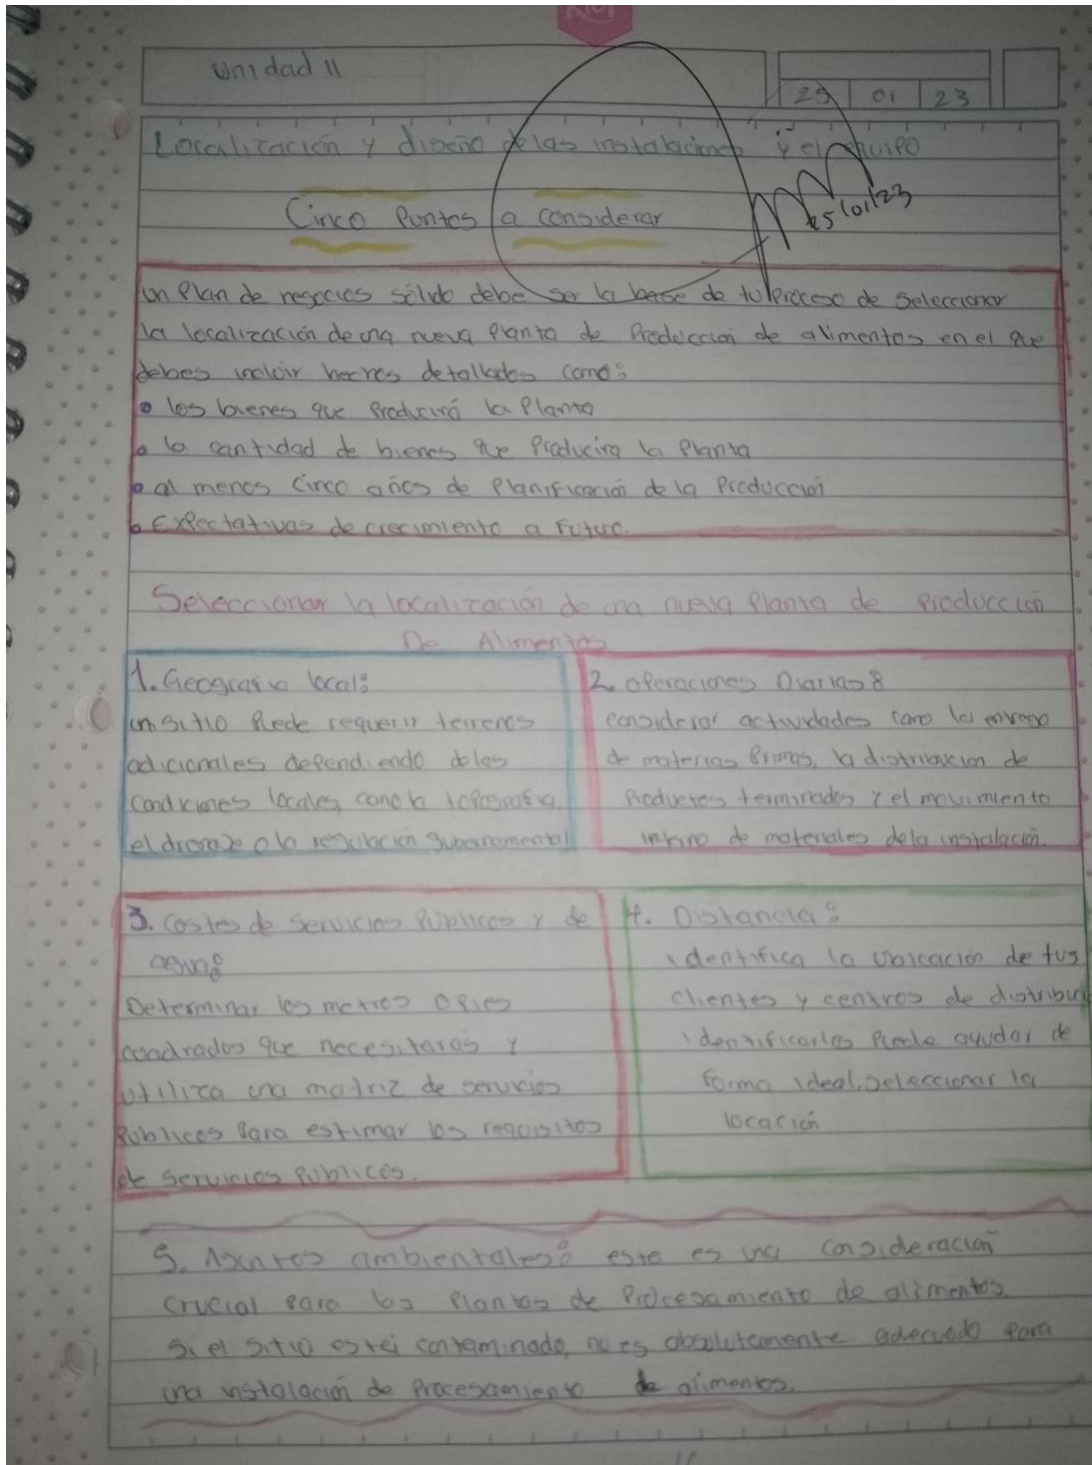 Unidad II
25 01 23
Localización y diseño de las instalaciones y el equipo
25/01/23
Cinco Puntos a considerar
un Plan de negocios sólido debe ser la base de tu Proceso de Seleccionar
la localización de una nueva Planta de Producción de alimentos en el que
debes incluir hechos detallados como:
• los bienes que Producirá la Planta
• la cantidad de bienes que Producira la Planta
• al menos cinco años de Planificación de la Producción
• Expectativas de crecimiento a Futuro.
Seleccionar la localización de una nueva Planta de Producción
De Alimentos
1. Geografia local:
un sitio Puede requerir terrenos
adicionales dependiendo de las
condiciones locales, como la topografia,
el drenaje o la regulación gubernamental
2. Operaciones Diarias:
considerar actividades como la entrega
de materias Primas, la distribucion de
Productos terminados y el movimiento
interno de materiales de la instalación.
3. Costes de Servicios Públicos y de
agua:
Determinar los metros o Pies
cuadrados que necesitaras y
utiliza una matriz de servicios
Publicos Para estimar los requisitos
de servicios Publicos.
4. Distancia:
identifica la ubicación de tus
clientes y centros de distribu
identificarlos Puede ayudar de
forma ideal. Seleccionar la
locación
5. Asuntos ambientales: esta es una consideración
crucial Para las Plantas de Procesamiento de alimentos.
Si el sitio está contaminado, no es absolutamente adecuado Para
una instalación de Procesamiento de alimentos.